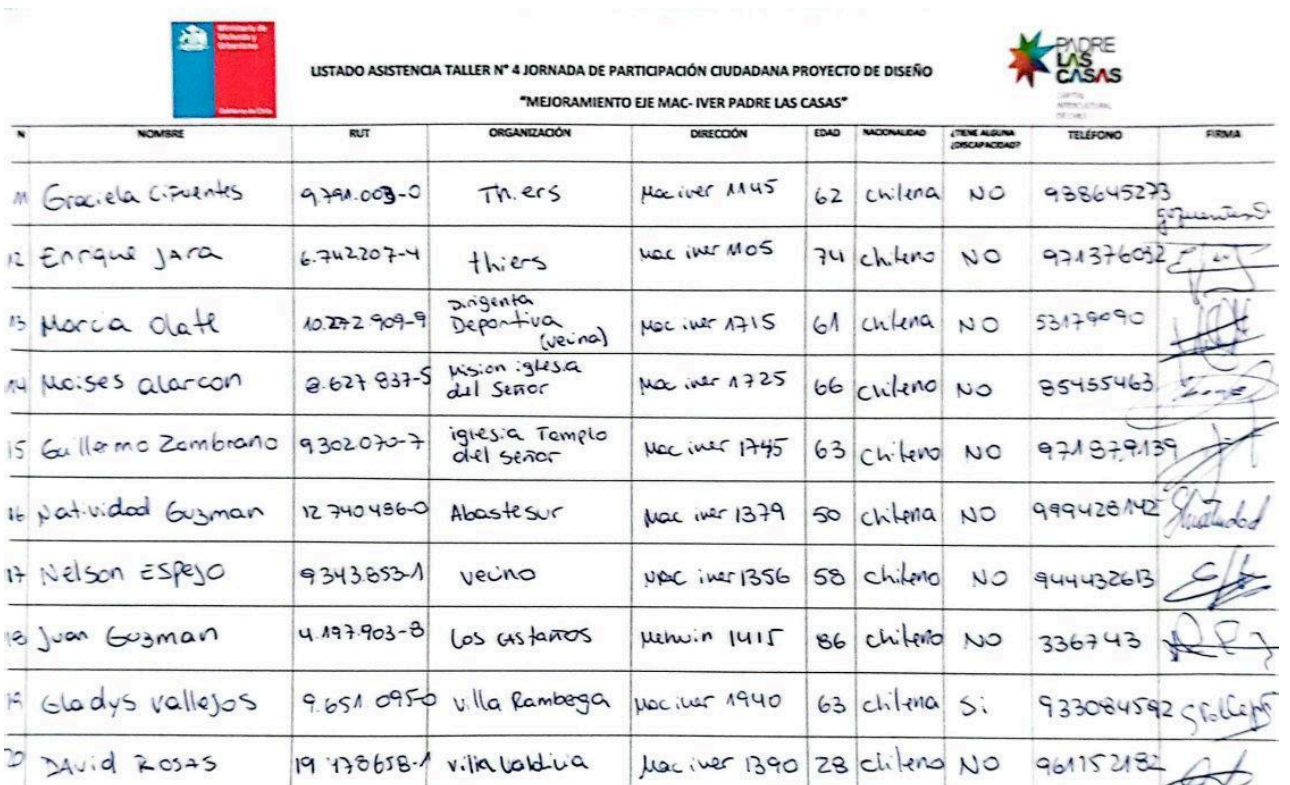 Ministerio de
Vivienda y
Urbanismo
Gobierno de Chile
PADRE
LAS
CASAS
CAPITAL
INTERCULTURAL
DE CHILE
LISTADO ASISTENCIA TALLER N° 4 JORNADA DE PARTICIPACIÓN CIUDADANA PROYECTO DE DISEÑO
"MEJORAMIENTO EJE MAC- IVER PADRE LAS CASAS"
N NOMBRE RUT ORGANIZACIÓN DIRECCIÓN EDAD NACIONALIDAD ¿TIENE ALGUNA ¿DISCAPACIDAD? TELÉFONO FIRMA
11 Graciela Cifuentes 9.791.003-0 Thiers Mac iver 1145 62 chilena NO 938645273
12 Enrique JARA 6.742207-4 thiers Mac iver 1105 74 chileno NO 971376032
13 Marcia Olate 10.272 909-9 Dirigenta Deportiva (vecina) Mac iver 1715 61 chilena NO 53179090
14 Moises alarcon 8.627 837-5 Mision iglesia del Señor Mac iver 1725 66 chileno NO 85455463
15 Guillermo Zambrano 9302070-7 iglesia Templo del señor Mac iver 1745 63 chileno NO 971879139
16 Natividad Guzman 12 740486-0 Abastesur Mac iver 1379 50 chilena NO 999428142
17 Nelson Espejo 9343.853-1 vecino Mac iver 1356 58 chileno NO 944432613
18 Juan Guzman 4.197.903-8 Los castaños 1415 86 chileno NO 336743
19 Gladys vallejos 9.651 095-0 villa Mac iver 1940 63 chilena Si 933084592
20 DAvid ROSAS 19 478658-1 villa valdivia Mac iver 1390 28 chileno NO 961152182